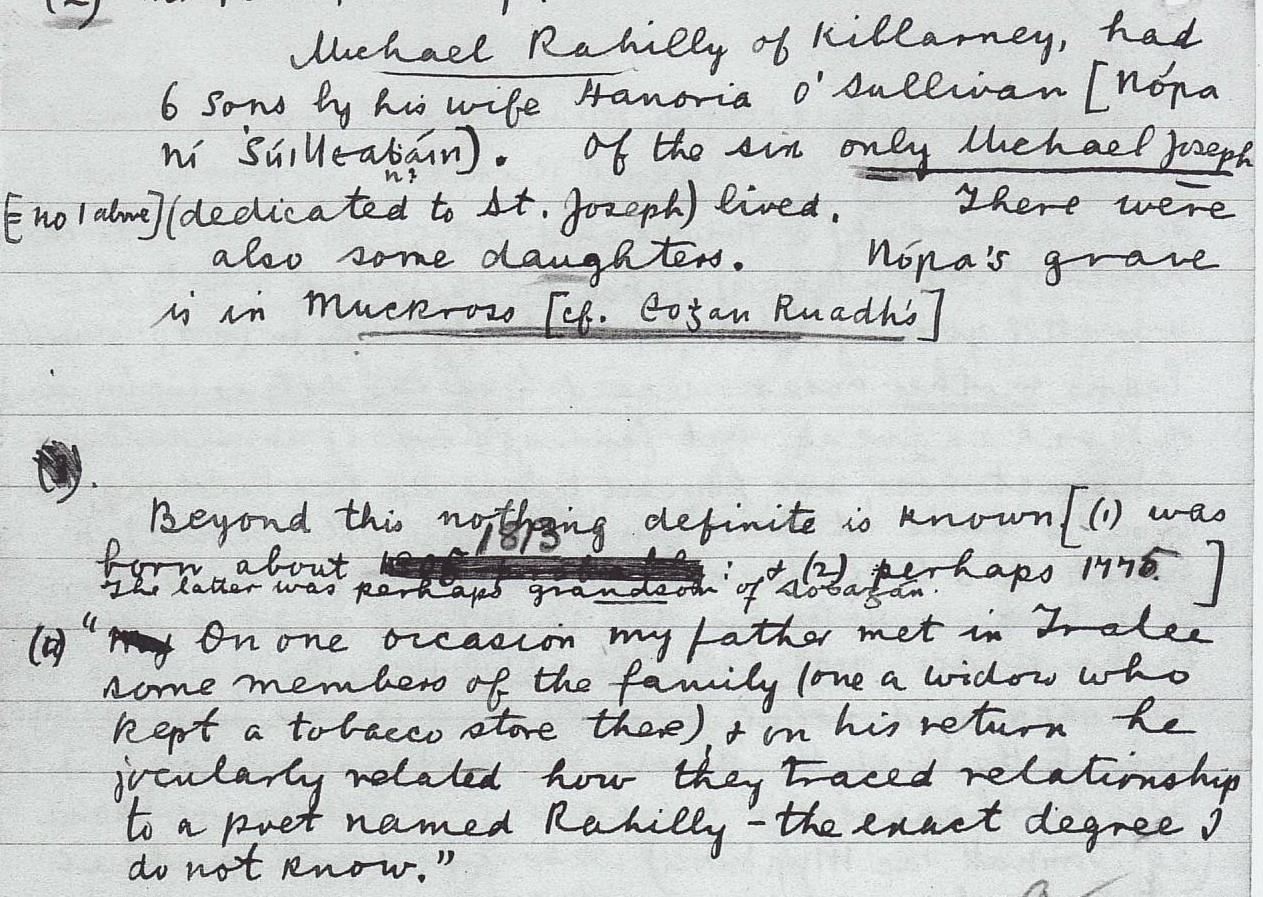 (2)
Michael Rahilly of Killarney, had
6 sons by his wife Hanoria O'Sullivan [Nóra
ní Súilleabáin). Of the six only Michael Joseph
[= no 1 above] (dedicated to St. Joseph) lived. There were
also some daughters. Nóra's grave
is in Muckross [cf. Eoġan Ruadh's]
Beyond this nothing definite is known [(1) was
born about 1813 : & (2) perhaps 1775.]
The latter was perhaps grandson of
"On one occasion my father met in Tralee
some members of the family (one a widow who
kept a tobacco store there), & on his return he
jocularly related how they traced relationship
to a poet named Rahilly - the exact degree I
do not know."